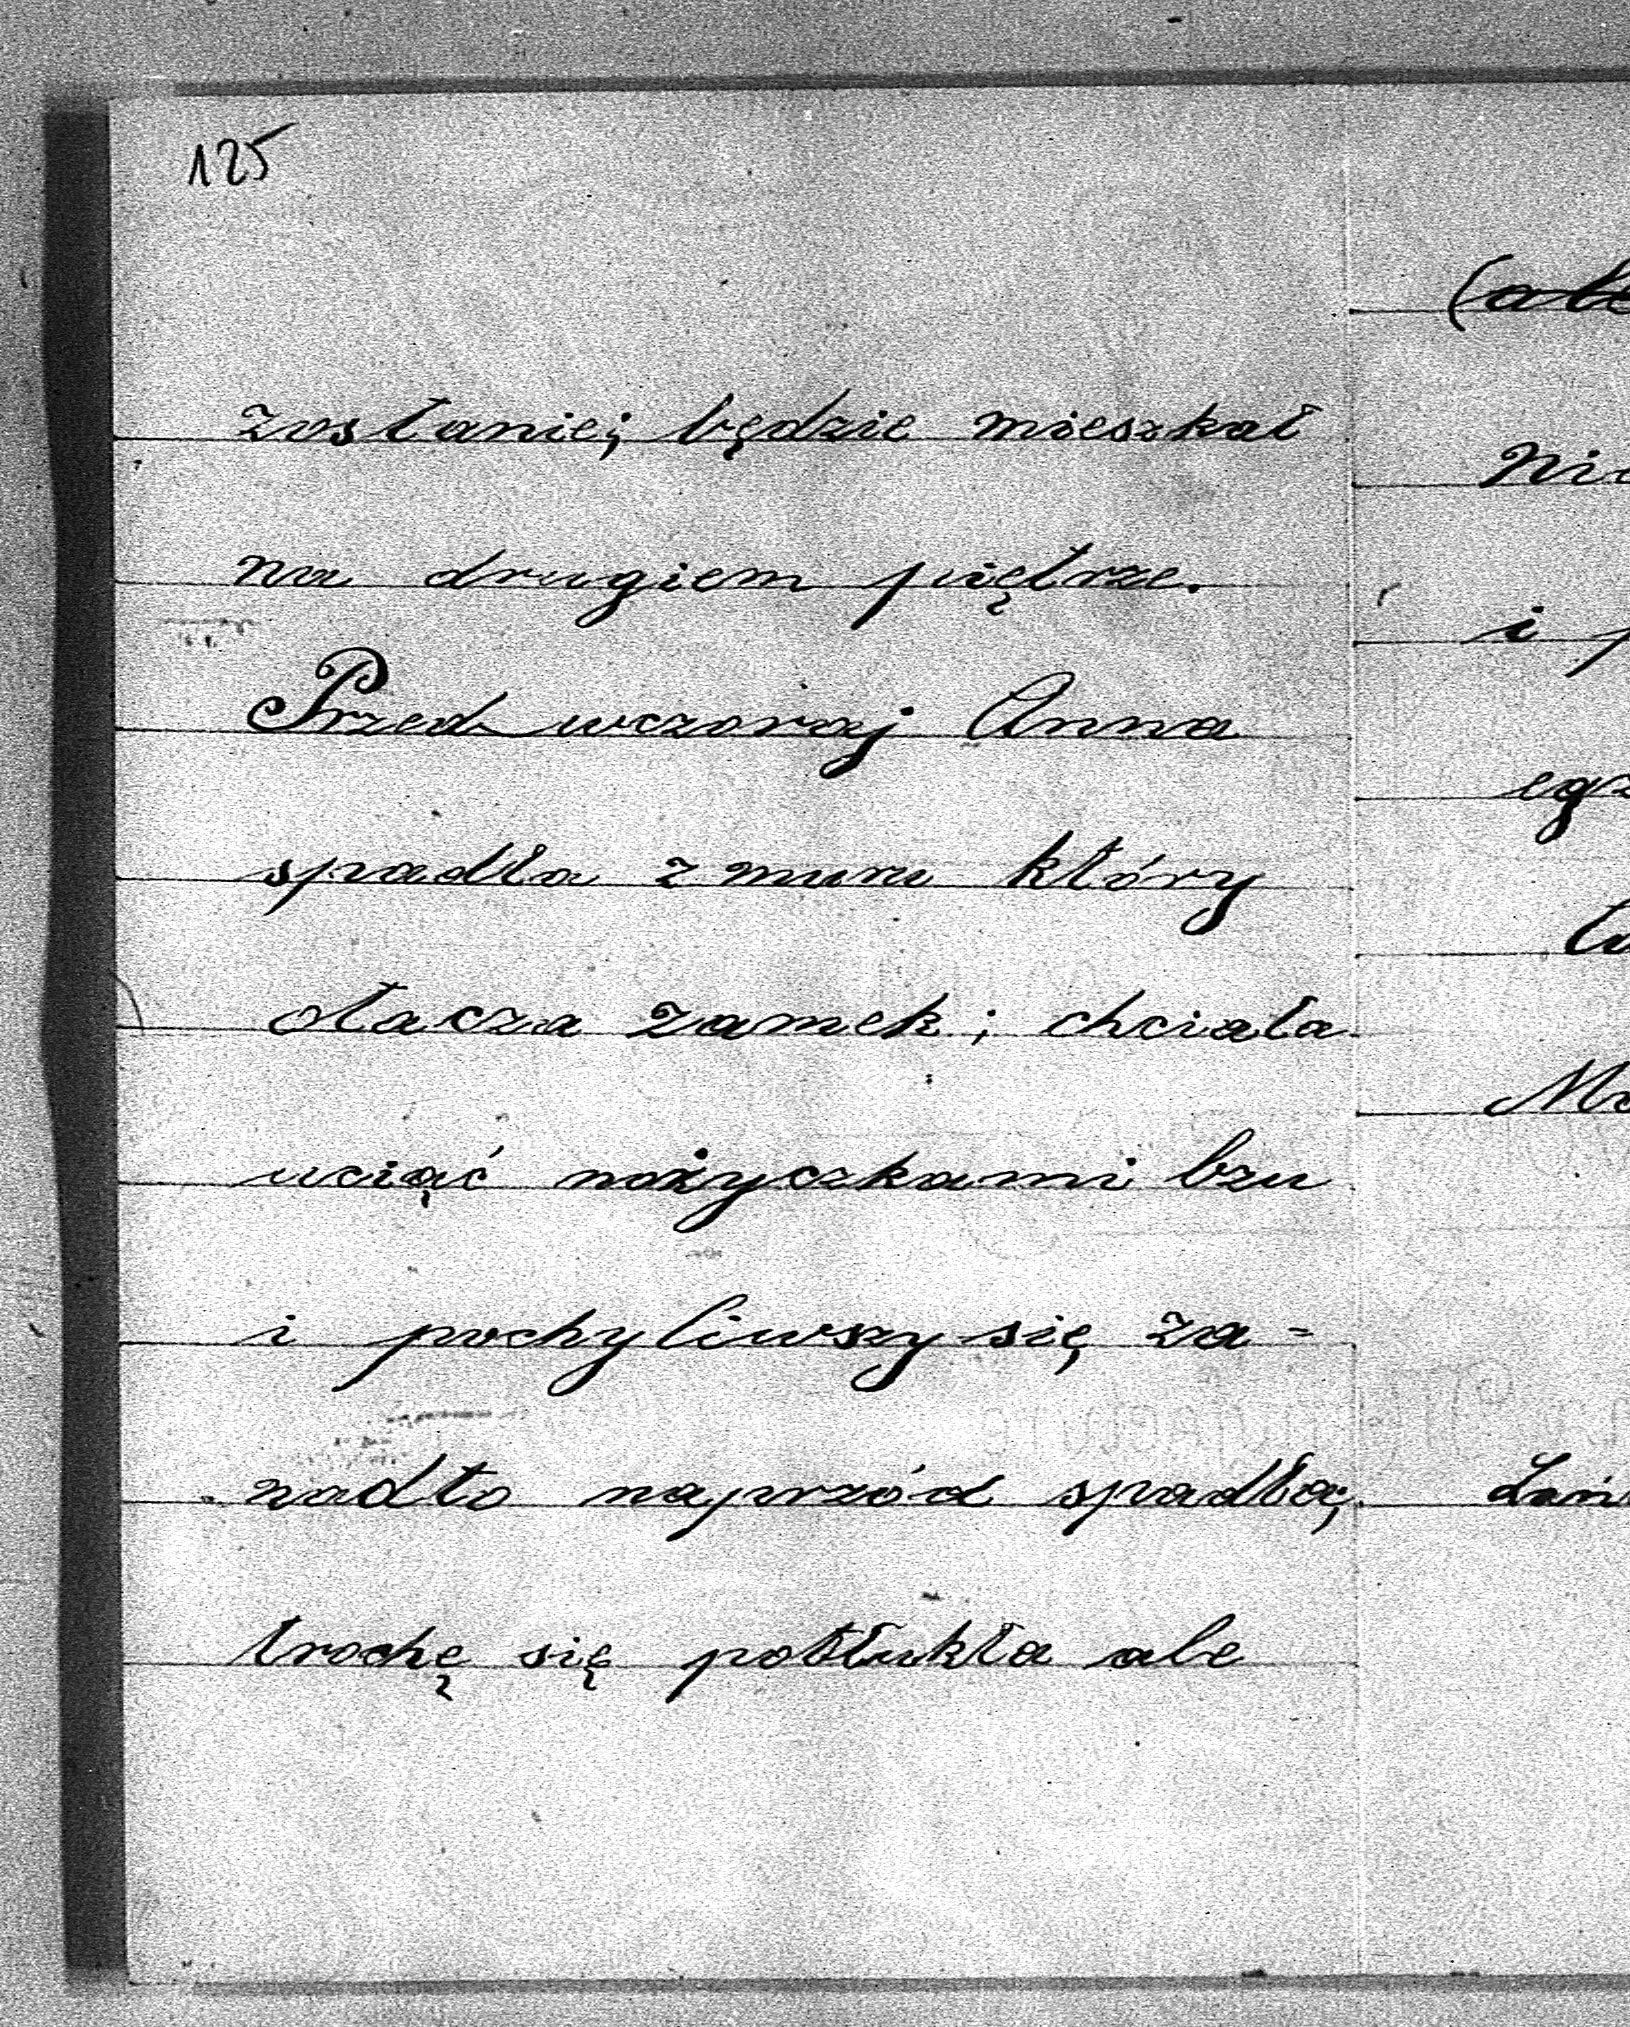 125
zostanie; będzie mieszkał
na drugiem piętrze.
Przedwczoraj Anna
spadła z muru który
otacza zamek; chciała
uciąć nożyczkami bzu
i pochyliwszy się za=
nadto naprzód spadła;
trochę się potłukła ale
(ale
i p